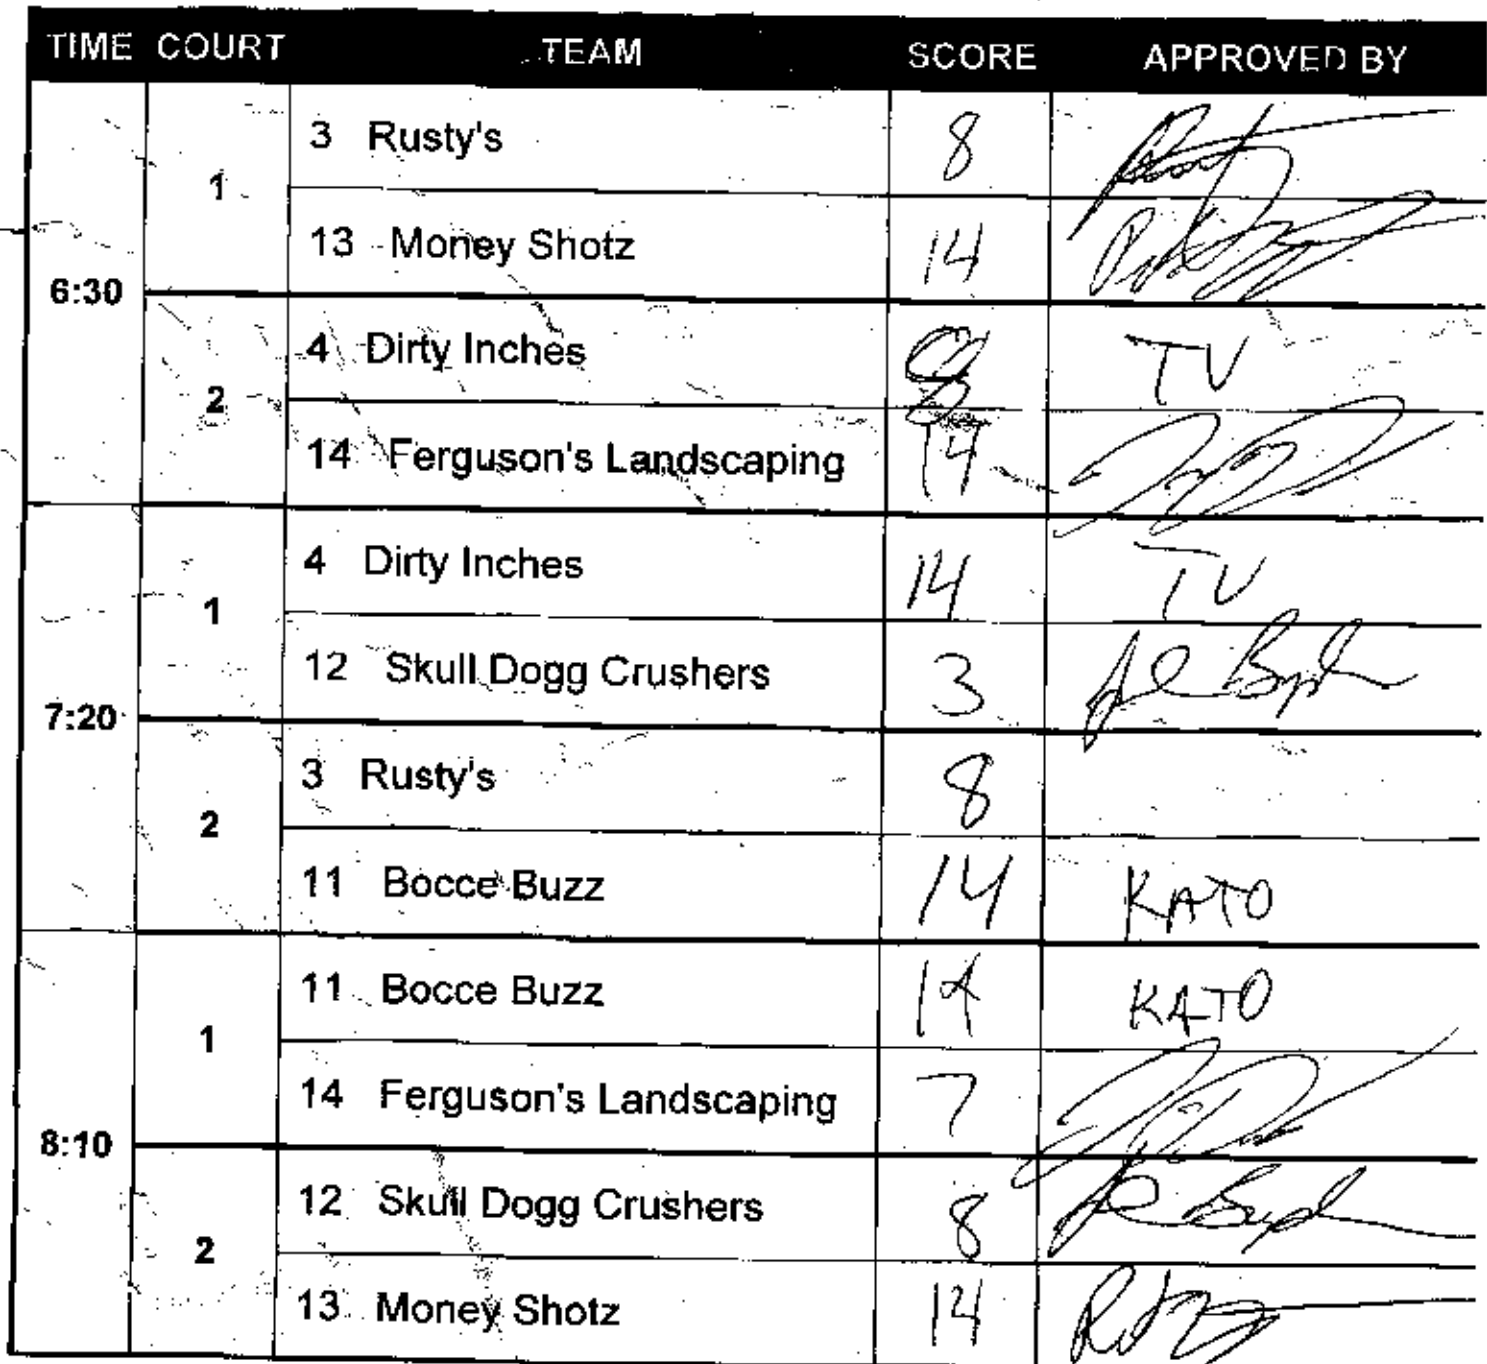 TIME COURT TEAM SCORE APPROVED BY
6:30
1
3 Rusty's 8
13 Money Shotz 14
2
4 Dirty Inches TV
14 Ferguson's Landscaping 14
7:20
1
4 Dirty Inches 14 TV
12 Skull Dogg Crushers 3
2
3 Rusty's 8
11 Bocce Buzz 14 KATO
8:10
1
11 Bocce Buzz 14 KATO
14 Ferguson's Landscaping 7
2
12 Skull Dogg Crushers 8
13 Money Shotz 14